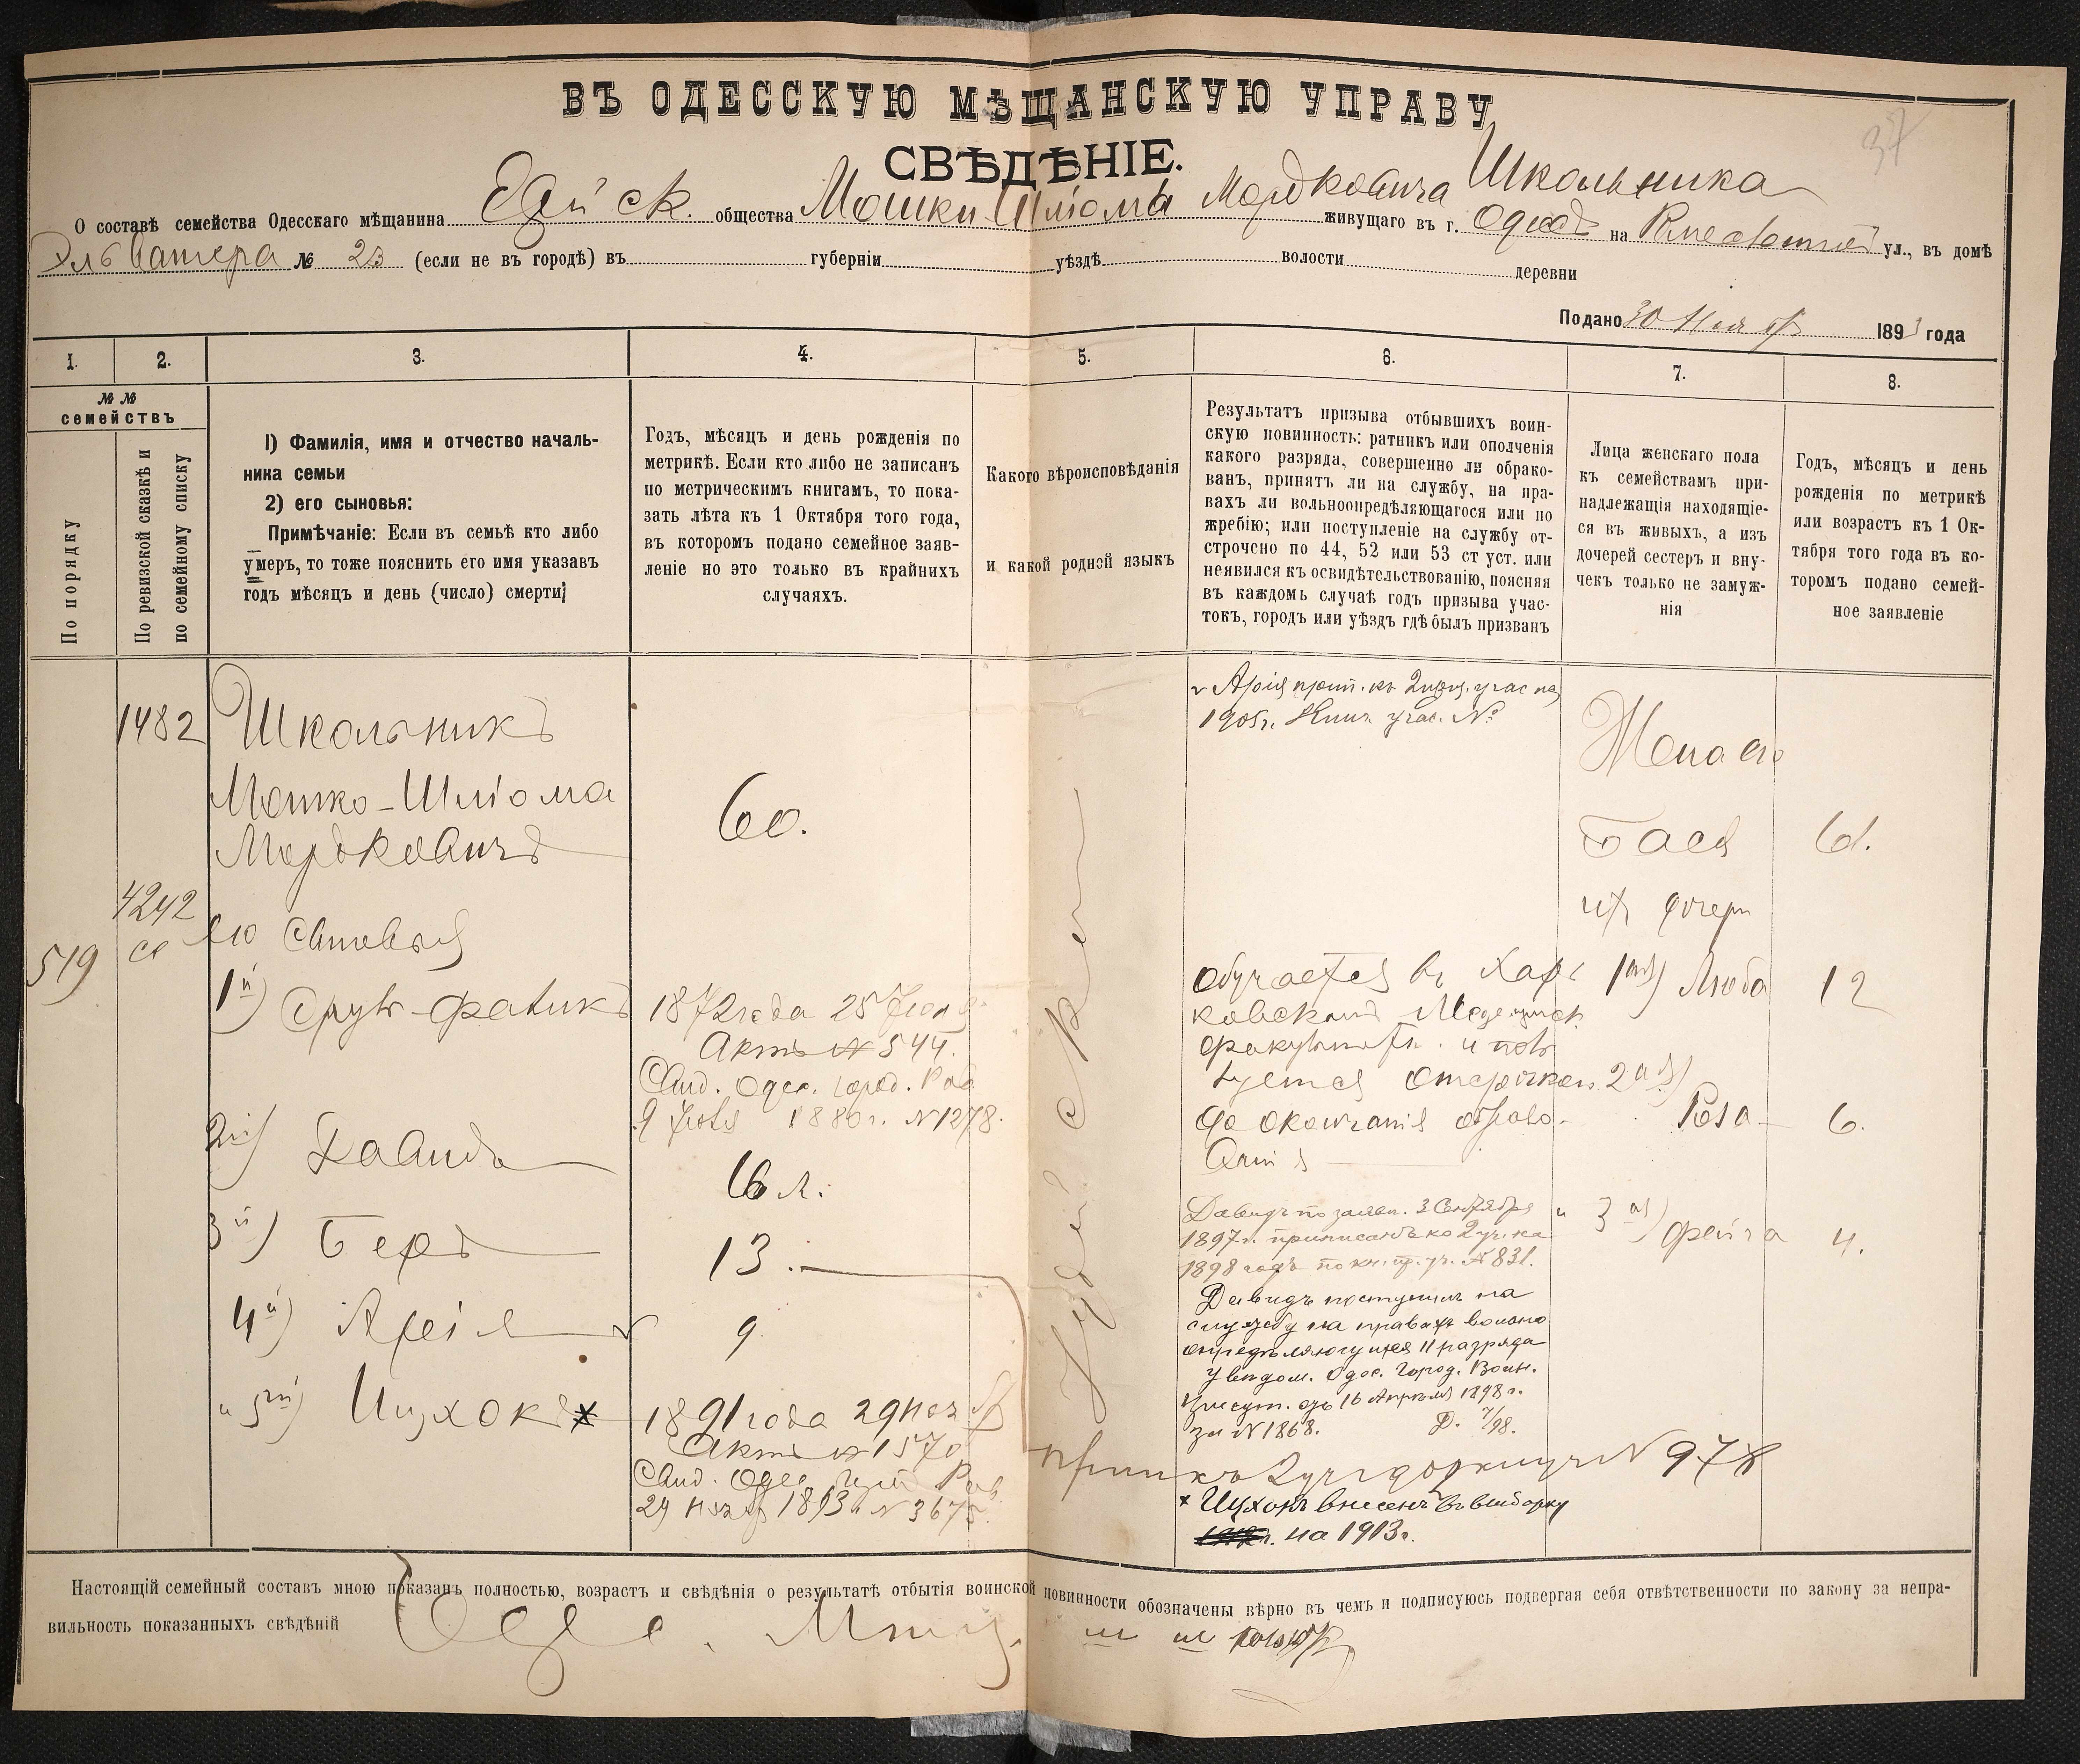 37
ВЪ ОДЕССКУЮ МѢЩАНСКУЮ УПРАВУ
СВѢДѢНІЕ.
О составѣ семейства Одесскаго мѣщанина общества Мошки-Шліомы Мордковича Школьника живущаго въ г. Одессѣ на ул., въ домѣ
№ 23 (если не въ городѣ) въ губерніи уѣздѣ волости деревни
Подано 30 Ноября 1893 года
1. 2. 3. 4. 5. 6. 7. 8.
№№ семействъ
По порядку
По ревизской сказкѣ и по семейному списку
1) Фамилія, имя и отчество началь-
ника семьи
2) его сыновья:
Примѣчаніе: Если въ семьѣ кто либо
умеръ, то тоже пояснить его имя указавъ
годъ мѣсяцъ и день (число) смерти]
Годъ, мѣсяцъ и день рожденія по
метрикѣ. Если кто либо не записанъ
по метрическимъ книгамъ, то пока-
зать лѣта къ 1 Октября того года,
въ которомъ подано семейное заяв-
леніе но это только въ крайнихъ
случаяхъ.
Какого вѣроисповѣданія
и какой родной языкъ
Результатъ призыва отбывшихъ воин-
скую повинность: ратникъ или ополченія
какого разряда, совершенно ли обрако-
ванъ, принятъ ли на службу, на пра-
вахъ ли вольноопредѣляющагося или по
жребію; или поступленіе на службу от-
строчено по 44, 52 или 53 ст уст. или
неявился къ освидѣтельствованію, поясняя
въ каждомъ случаѣ годъ призыва учас-
токъ, городъ или уѣздъ гдѣ былъ призванъ
Лица женскаго пола
къ семействамъ при-
надлежащія находящіе-
ся въ живыхъ, а изъ
дочерей сестеръ и вну-
чекъ только не замуж-
нія
Годъ, мѣсяцъ и день
рожденія по метрикѣ
или возрастъ къ 1 Ок-
тября того года въ ко-
торомъ подано семей-
ное заявленіе
519
1482
4242
Школьникъ
Мошко-Шліома
Мордковичъ
его сыновья
1й) Сруль-Файвикъ
2й) Давидъ
3й) Беръ
4й) Арія
и 5й) Ицхокъ х
60.
1872 года 25
Актъ № 544.
Свид. Одес. город. Рав
1880 г. № 1278.
16 л.
13.
9
1891 года 29 Нояб
Актъ № 1570
Свид. Одес. Рав.
29 Нояб 1893 г. № 3675.
Іудей
v Арія прип. къ 2 приз. учас на
1905 г. учас. №
Обучается въ Харь
ковскомъ Медецинск.
факультетѣ. и поль
зуется отсрочкою
до окончанія образо-
ванія
Давидъ по заявл. 3 Сентября
1897 г. приписанъ ко 2 уч. на
1898 годъ по кн. пр. уч. № 831.
Давидъ поступилъ на
службу на правахъ вольно
опредѣляющагося II разряда
Увѣдом. Одес. Город. Воин.
Присут. отъ 16 Апрѣля 1898 г.
за № 1868. Д. /98.
№ 978
х Ицхокъ внесенъ въ выборку
на 1913 г.
Жена его
Бася 61.
ихъ дочери
1ая) Люба 12
2ая) Роза 6.
и 3ая) Фейга 4.
Настоящій семейный составъ мною показанъ полностью, возрастъ и свѣдѣнія о результатѣ отбытія воинской повинности обозначены вѣрно въ чемъ и подписуюсь подвергая себя отвѣтственности по закону за непра-
вильность показанныхъ свѣдѣній